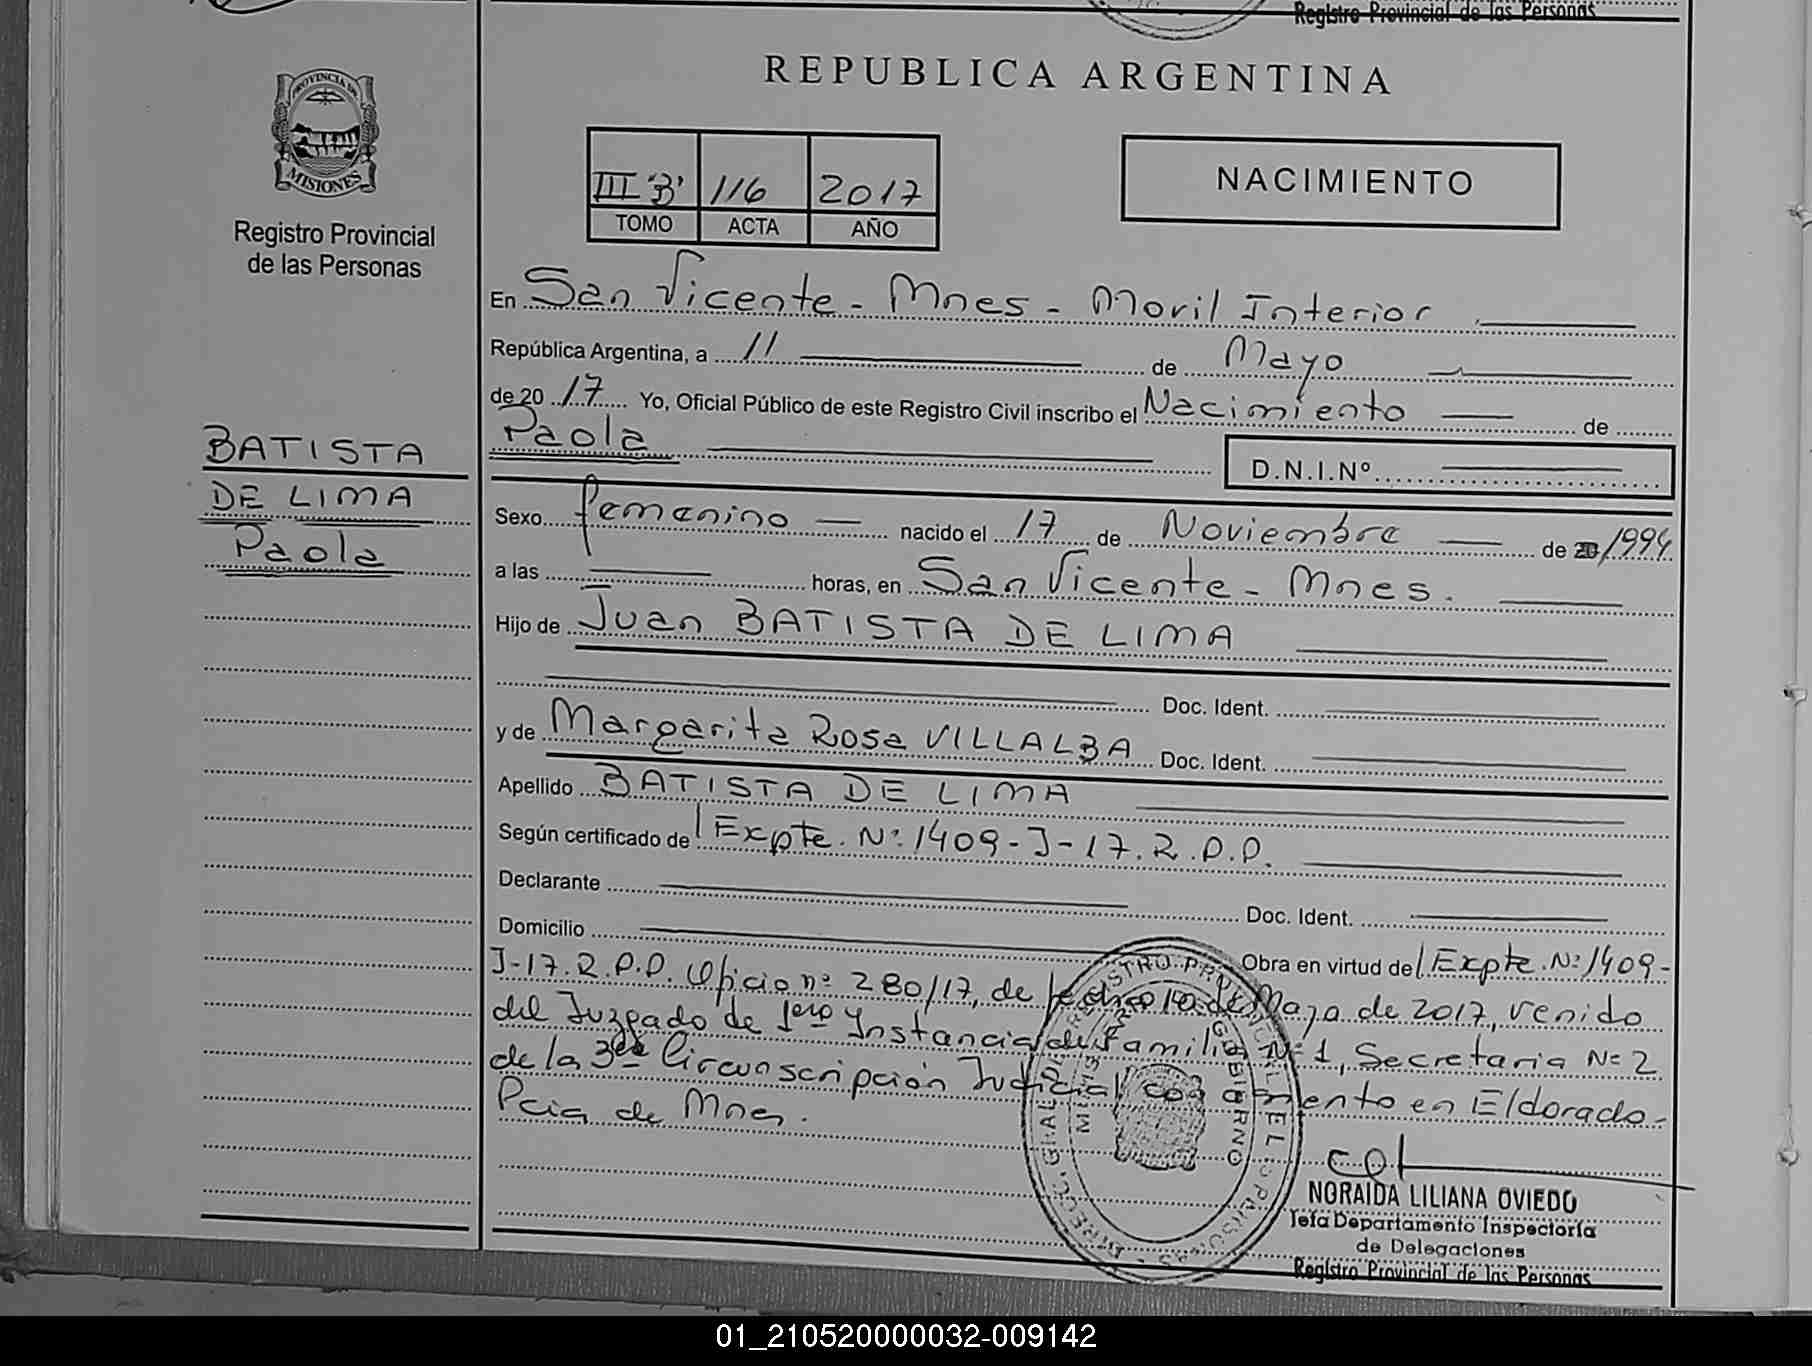 Registro Provincial de las Personas
REPUBLICA ARGENTINA
PROVINCIA DE
MISIONES
Registro Provincial
de las Personas
III "B" 116 2017
TOMO ACTA AÑO
NACIMIENTO
En San Vicente - Mnes - Movil Interior
República Argentina, a 11 de Mayo
de 2017 Yo, Oficial Público de este Registro Civil inscribo el Nacimiento de
Paola
D.N.I.Nº
BATISTA
DE LIMA
Paola
Sexo femenino nacido el 17 de Noviembre de 20 1994
a las horas, en San Vicente - Mnes.
Hijo de Juan BATISTA DE LIMA
Doc. Ident.
y de Margarita Rosa VILLALBA Doc. Ident.
Apellido BATISTA DE LIMA
Según certificado de Expte. Nº 1409-J-17.R.P.P.
Declarante Doc. Ident.
Domicilio Obra en virtud del Expte. Nº 1409-
J-17.R.P.P. Oficio nº 280/17, de fecha 10 de Mayo de 2017, venido
del Juzgado de 1era Instancia de Familia Nº 1, Secretaria Nº 2
de la 3era Circunscripción Judicial con asiento en Eldorado -
Pcia de Mnes.
NORAIDA LILIANA OVIEDO
Jefa Departamento Inspectoría
de Delegaciones
Registro Provincial de las Personas
01_210520000032-009142